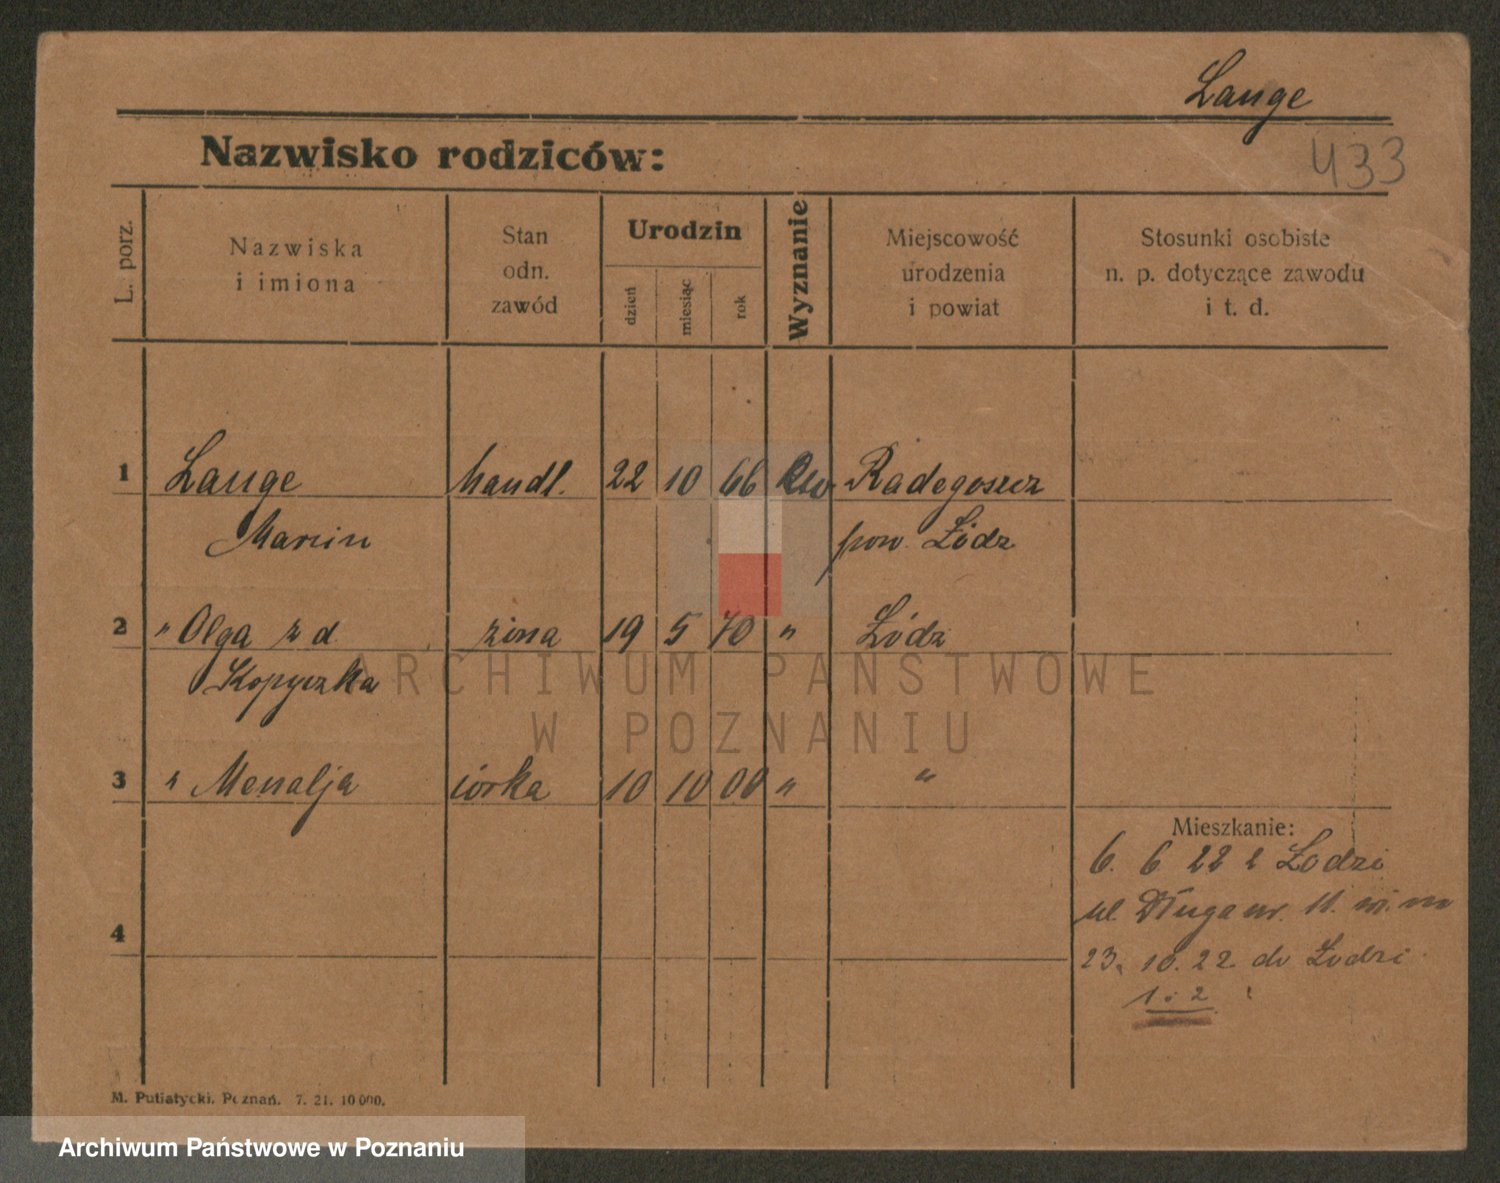 Lange
433
Nazwisko rodziców:
L. porz.
Nazwiska
i imiona
Stan
odn.
zawód
Urodzin
dzień
miesiąc
rok
Wyznanie
Miejscowość
urodzenia
i powiat
Stosunki osobiste
n. p. dotyczące zawodu
i t. d.
1 Lange handl. 22 10 66 Radegoszcz
Marcin pow. Łódz
2 " Olga z d. żona 19 5 70 " Łódz
Kopyczka
3 " córka 10 10 00 " "
Mieszkanie:
6. 6 22 z Łodzi
ul. Długa nr. 11.
4
23. 10. 22. do Łodzi
1 i 2
M. Putiatycki. Poznań. 7. 21. 10 000.
ARCHIWUM PAŃSTWOWE
W POZNANIU
Archiwum Państwowe w Poznaniu